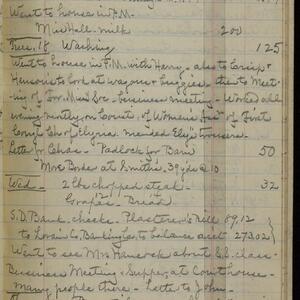 Went to house in P.M.
Miss Hall - milk 2.00
Tues. 18 Washing 1.25
Went to house in P.M. with Harry - also to Crisp &
Hensons to look at wagons - buggies - then to Meet-
ing of For. Miss. Soc - business meeting - Worked all
evening nearly, on Const. of Womans of First
Cong'l Ch. of Elyria. mended Ely's trousers.
Letter fr Chas. - Padlock for Barn 50
Mrs Bode at Smith's, 39 yds @ 10
Wed - 2 lbs chopped steak - 32
Grapes - Bread
S. D. Bank. checks. Plasterer's Bill 89.12
to Lorain Co. Banking Co. to balance acct 273.02
Went to see Mrs Hancock about S.S. class
Business Meeting & Supper, at Courthouse -
many people there - Letter to John -